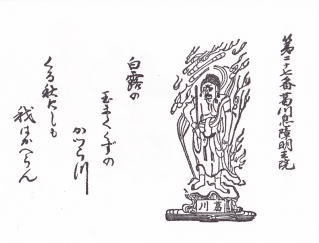 第二十七番葛川息障明王院
葛川
白露の
玉まくくずの
かつら川
くる秋にしも
我はかへらん